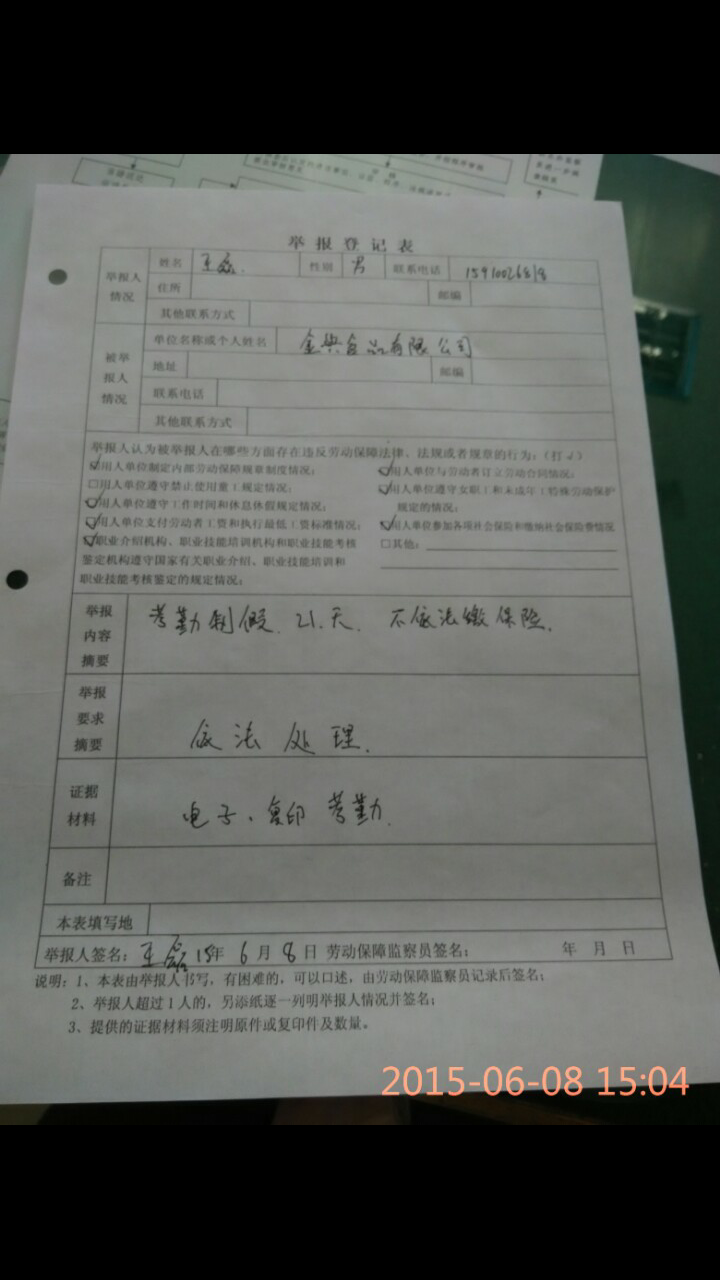 举报登记表
举报人情况 姓名 王磊 性别 男 联系电话
住所 邮编
其他联系方式
被举报人情况 单位名称或个人姓名 金典食品有限公司
地址 邮编
联系电话
其他联系方式
举报人认为被举报人在哪些方面存在违反劳动保障法律、法规或者规章的行为:(打√)
☑用人单位制定内部劳动保障规章制度情况; ☑用人单位与劳动者订立劳动合同情况;
□用人单位遵守禁止使用童工规定情况; ☑用人单位遵守女职工和未成年工特殊劳动保护
☑用人单位遵守工作时间和休息休假规定情况; 规定的情况;
☑用人单位支付劳动者工资和执行最低工资标准情况; ☑用人单位参加各项社会保险和缴纳社会保险费情况
☑职业介绍机构、职业技能培训机构和职业技能考核 □其他:
鉴定机构遵守国家有关职业介绍、职业技能培训和
职业技能考核鉴定的规定情况;
举报内容摘要 考勤制假. 21.天. 不依法缴保险.
举报要求摘要 依法处理.
证据材料 电子、复印考勤.
备注
本表填写地
举报人签名: 王磊 15年 6月 8日 劳动保障监察员签名: 年 月 日
说明:1、本表由举报人书写,有困难的,可以口述,由劳动保障监察员记录后签名;
2、举报人超过1人的,另添纸逐一列明举报人情况并签名;
3、提供的证据材料须注明原件或复印件及数量。
2015-06-08 15:04